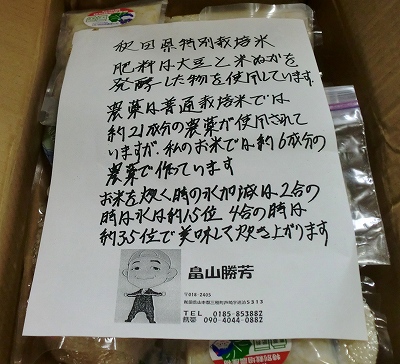 秋田県特別栽培米
肥料は大豆と米ぬかを
発酵した物を使用しています。
農薬は普通栽培米では
約21成分の農薬が使用されて
いますが、私のお米では約6成分の
農薬で作っています
お米を炊く時の水加減は2合の
時は水は約1.5位 4合の時は
約3.5位で美味しく炊き上がります
畠山勝芳
〒018-2405
TEL 0185-853882
携帯 090-4044-0882